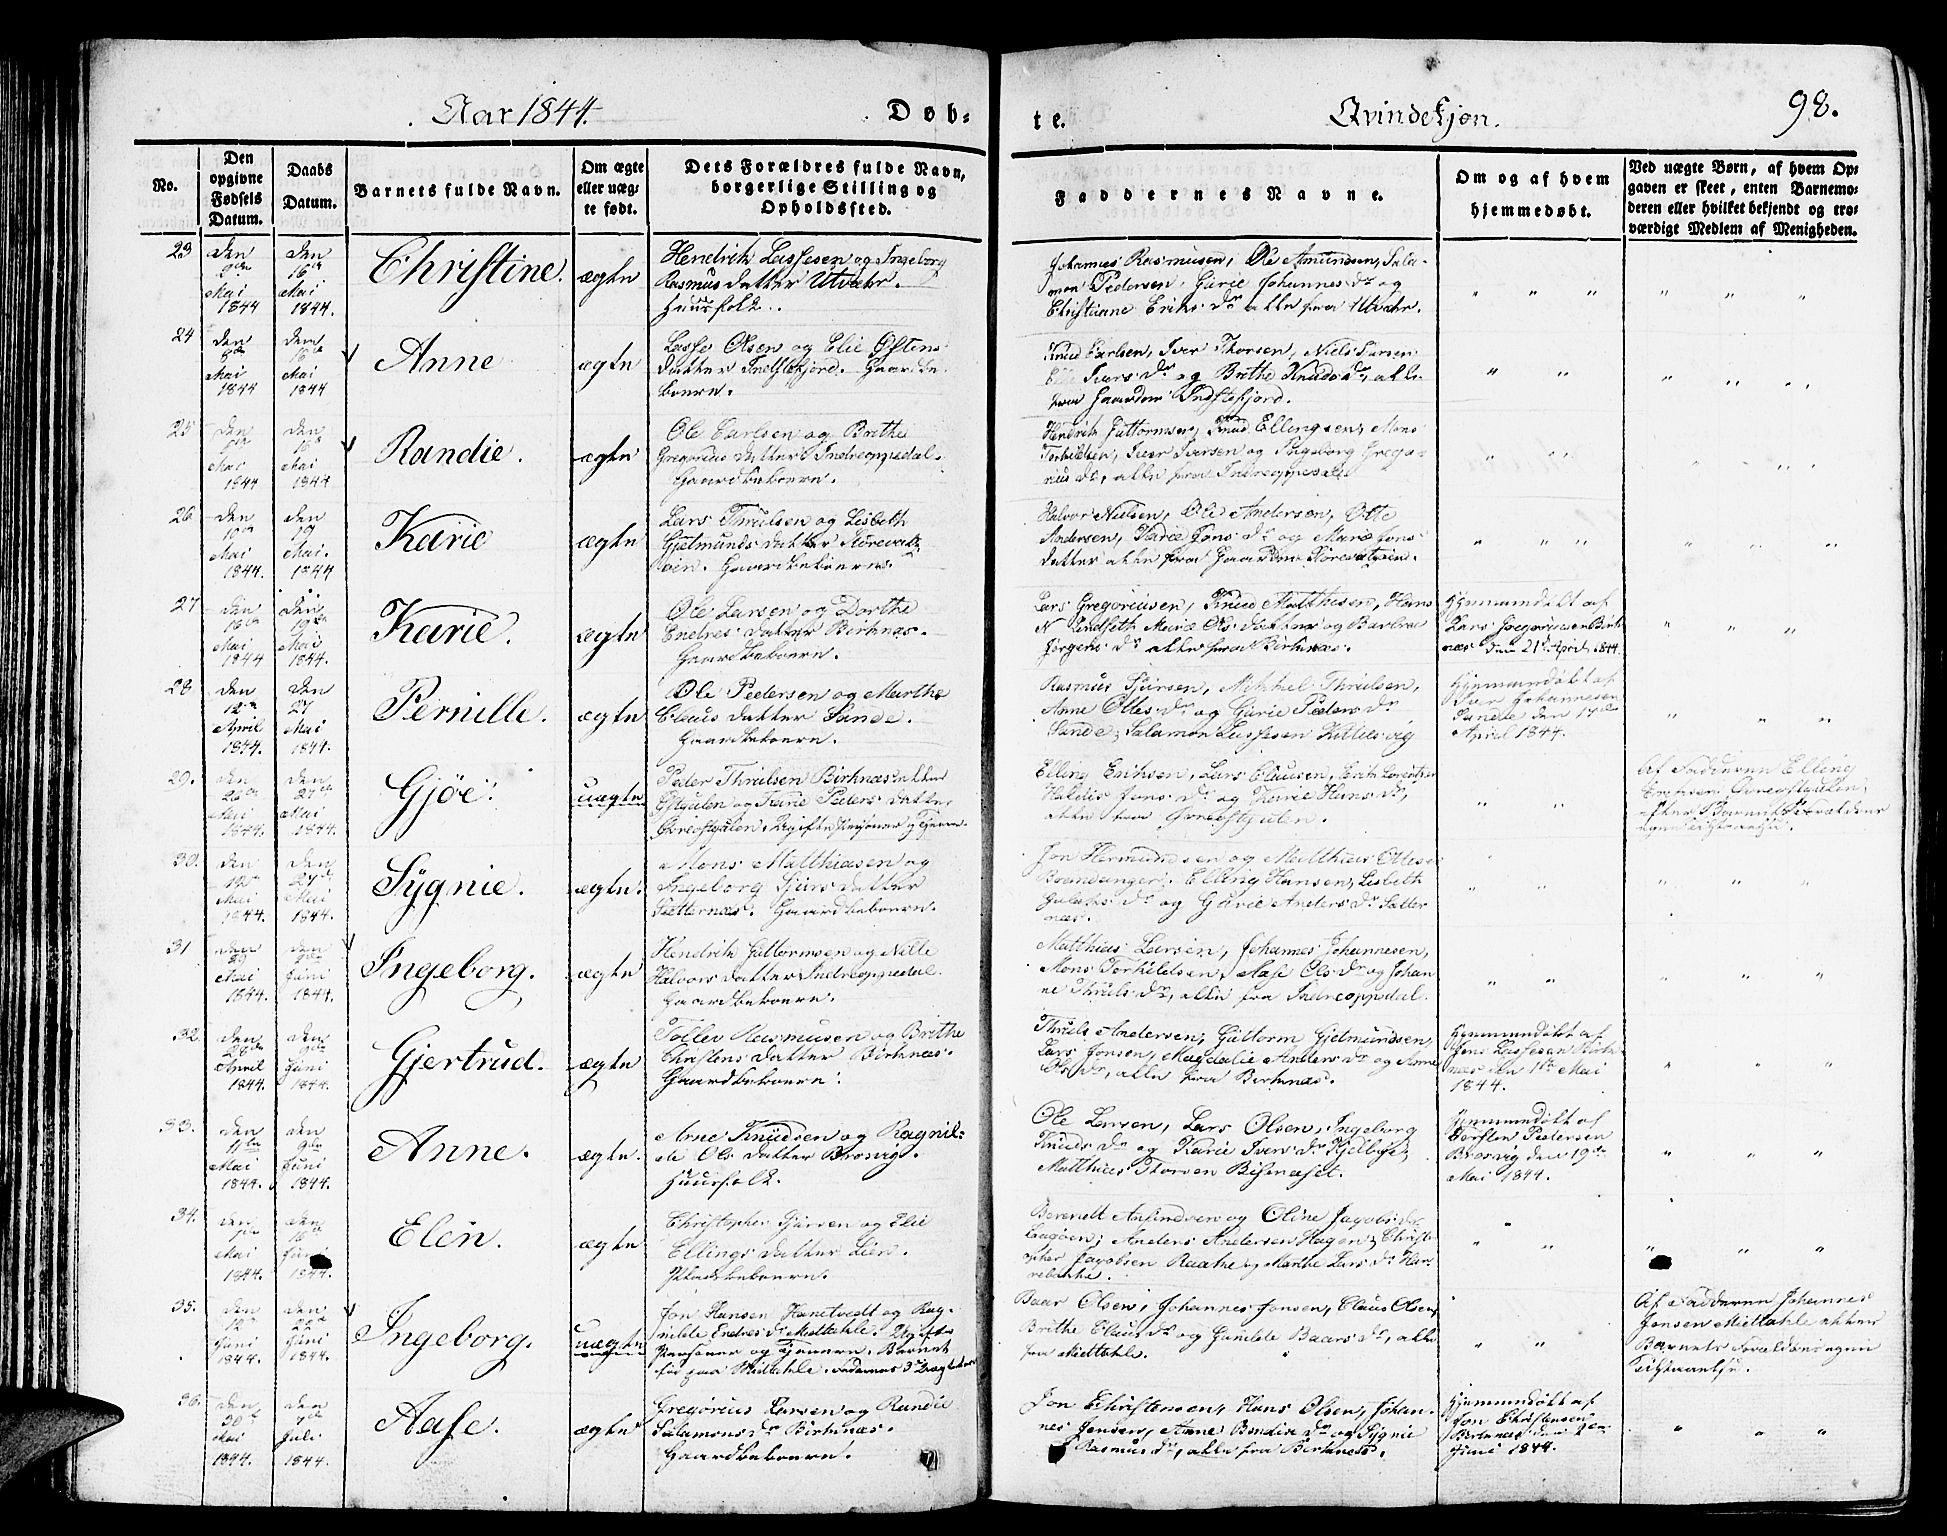 Aar 1844.
Døb-
te.
Qvindekjøn.
98.
No.
Den opgivne Fødsels Datum.
Daabs Datum.
Barnets fulde Navn.
Om ægte eller uæg-
te født.
Dets Forældres fulde Navn,
borgerlige Stilling og
Opholdssted.
Faddernes Navne.
Om og af hvem
hjemmedøbt.
Ved uægte Børn, af hvem Op-
gaven er skeet, enten Barnemo-
deren eller hvilket bekjendt og tro-
værdigt Medlem af Menigheden.
23
den
Mai
1844
den
16de
Mai
1844.
Christine.
ægte
Hendrik Lassesen og Ingeborg
Rasmus datter Utvær.
Huusfolk.
Johannes Rasmusen, Ole Amundsen, Sala-
mon Pedersen, Gurie Johannes Dr og
Christiane Eriks Dr alle fra Utvær.
24
den
Mai
1844
den
Mai
1844
Anne
ægte
Lasse Olsen og Elie Østens
datter Indstefjord. Gaardbe-
boere.
Knud Carlsen, Iver Thorsen, Niels Larsen
Ivers Dr og Brithe Knuds Dr, alle
fra Gaarden Indstefjord.
25
den
Mai
1844
den
Mai
1844
Randie.
ægte
Ole Carlsen og Brithe
Gregorius datter Indreoppedal.
Gaardbeboere.
Hendrik Guttormsen, Knud Ellingsen, Mons
Torkildsen, Iver Iversen og Ingeborg Grego-
rius Dr, alle fra Indreoppedal.
26
den
10de
Mai
1844.
den
19
Mai.
1844
Karie
ægte
Lars Thrulsen og Lisbeth
Gjelmunds datter
Gaardbeboere.
Halvor Nielsen, Ole Andersen, Otte
Andersen, Karie Jons Dr og Marie Jons
datter alle fra Gaarden
27
den
16de
Mai
1844
den
19de
Mai
1844.
Karie.
ægte
Ole Larsen og Dorthe
Endres datter Birknæs.
Gaardbeboere.
Lars Gregoriusen, Knud Matthiesen, Hans
N Lindseth Marie Ols datter og Barbra
Jørgens Dr alle fra Birknæs.
Hjemmedøbt af
Lars Gregoriusen Birk-
næs den 21de April 1844.
28
den
12te
April
1844.
den
27
Mai
1844.
Pernille.
ægte
Ole Pedersen og Marthe
Claus datter Sande.
Gaardbeboere.
Rasmus Sjursen, Nikkel Thrulsen,
Anne Ottes Dr og Gurie Peders Dr
Sande, Salamon Lassesen Kittelsvig
Hjemmedøbt af
Iver Johannesen
Sande den 17de
April 1844.
29.
den
26de
Mai
1844.
den
27de
Mai
1844.
Gjøe.
uægte
Peder Thrulsen Birknæs eller
og Karie Peders datter
Elling Eriksen, Lars Clausen, Erik
Haldis Jons Dr og Karie Hans Dr,
alle fra
Af Fadderen Elling
Eriksen
efter Barnets Forældres
egen tilstaaelse.
30.
den
Mai
1844.
den
27de
Mai
1844.
Sygnie.
ægte.
Mons Matthiasen og
Ingeborg Sjurs datter
Sætternæs. Gaardbeboere.
Jon Hermundsen og Matthias Ottesen
Brandanger, Elling Hansen, Lisbeth
Dr og Gurie Anders Dr Sætter-
næs.
31
den
Mai
1844.
den
Juni
1844.
Ingeborg.
ægte
Hendrik Guttormsen og Nille
Halvors datter Indreoppedal.
Gaardbeboere.
Matthias Larsen, Johannes Johannesen,
Mons Torkildsen, Aase Ols Dr og Johan-
ne Thruls Dr, alle fra Indreoppedal.
32.
den
28de
April
1844.
den
Juni
1844.
Gjertrud.
ægte
Toller Rasmusen og Brithe
Christens datter Birknæs.
Gaardbeboere.
Thruls Andersen, Guttorm Gjelmundsen,
Lars Jonsen, Magdalie Anders Dr og Anne
Ols Dr, alle fra Birknæs.
Hjemmedøbt af
Jens Lassesen Birk-
næs den 1ste Mai
1844.
33.
den
11te
Mai
1844.
den
9de
Juni
1844.
Anne.
ægte.
Arne Knudsen og Ragnil-
de Ols datter Brosvig.
Huusfolk.
Ole Larsen, Lars Olsen, Ingeborg
Knuds Dr og Karie Ivers Dr
Matthias Thorsen
Hjemmedøbt af
Torsten Pedersen
Brosvig den 19de
Mai 1844.
34.
den
Mai
1844.
den
16de
Juni
1844.
Elen.
ægte
Christopher Sjursen og Elie
Ellings datter Lien.
Pladsbeboere.
Berendt Amundsen og Oline Jacobs Dr
Anders Andersen Hagen, Christ-
opher Jacobsen Raathe og Marthe Lars Dr Har-
rebakke.
35.
den
12te
Juni
1844.
den
22de
Juni
1844.
Ingeborg.
uægte
Jon Hansen Hanetvedt og Rag-
nilde Endres Dr Midttahle. Ugifte
Personer og tjenere. Barnet
født paa Midttahle. Faderens 3de
Baar Olsen, Johannes Jonsen, Claus Olsen,
Brithe Claus Dr og Gunilde Baars Dr, alle
fra Midttahle.
Af Fadderen Johannes
Jonsen Midttahle efter
Barnets Forældres egen
tilstaaelse.
36.
den
30te
Mai
1844.
den
7de
Juli
1844.
Aase.
ægte.
Gregorius Larsen og Randie
Salamons Dr Birknæs.
Gaardbeboere.
Jon Christensen, Hans Olsen, Johan-
nes Jensen, Anne Bendix Dr og Sygnie
Rasmus Dr, alle fra Birknæs.
Hjemmedøbt af
Jon Christensen
Birknæs den 2den
Juni 1844.